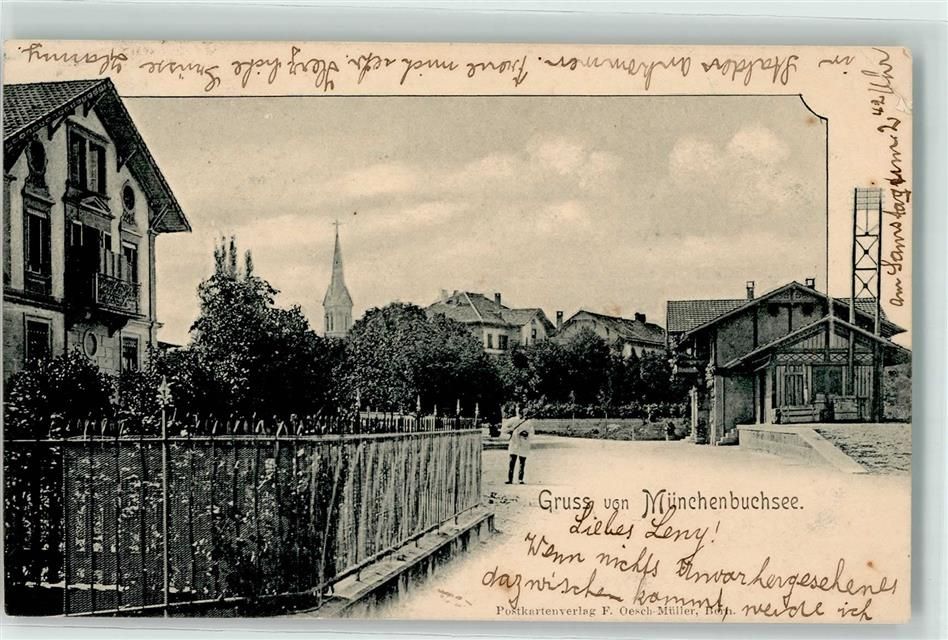 Gruss von Münchenbuchsee.
Liebes Leny!
Wenn nichts Unvorhergesehenes
dazwischen kommt, werde ich
am Samstag um 2 42 Uhr
in Stalden ankommen. Freue mich sehr. Herzliche Grüsse
Postkartenverlag F. Oesch-Müller, Bern.